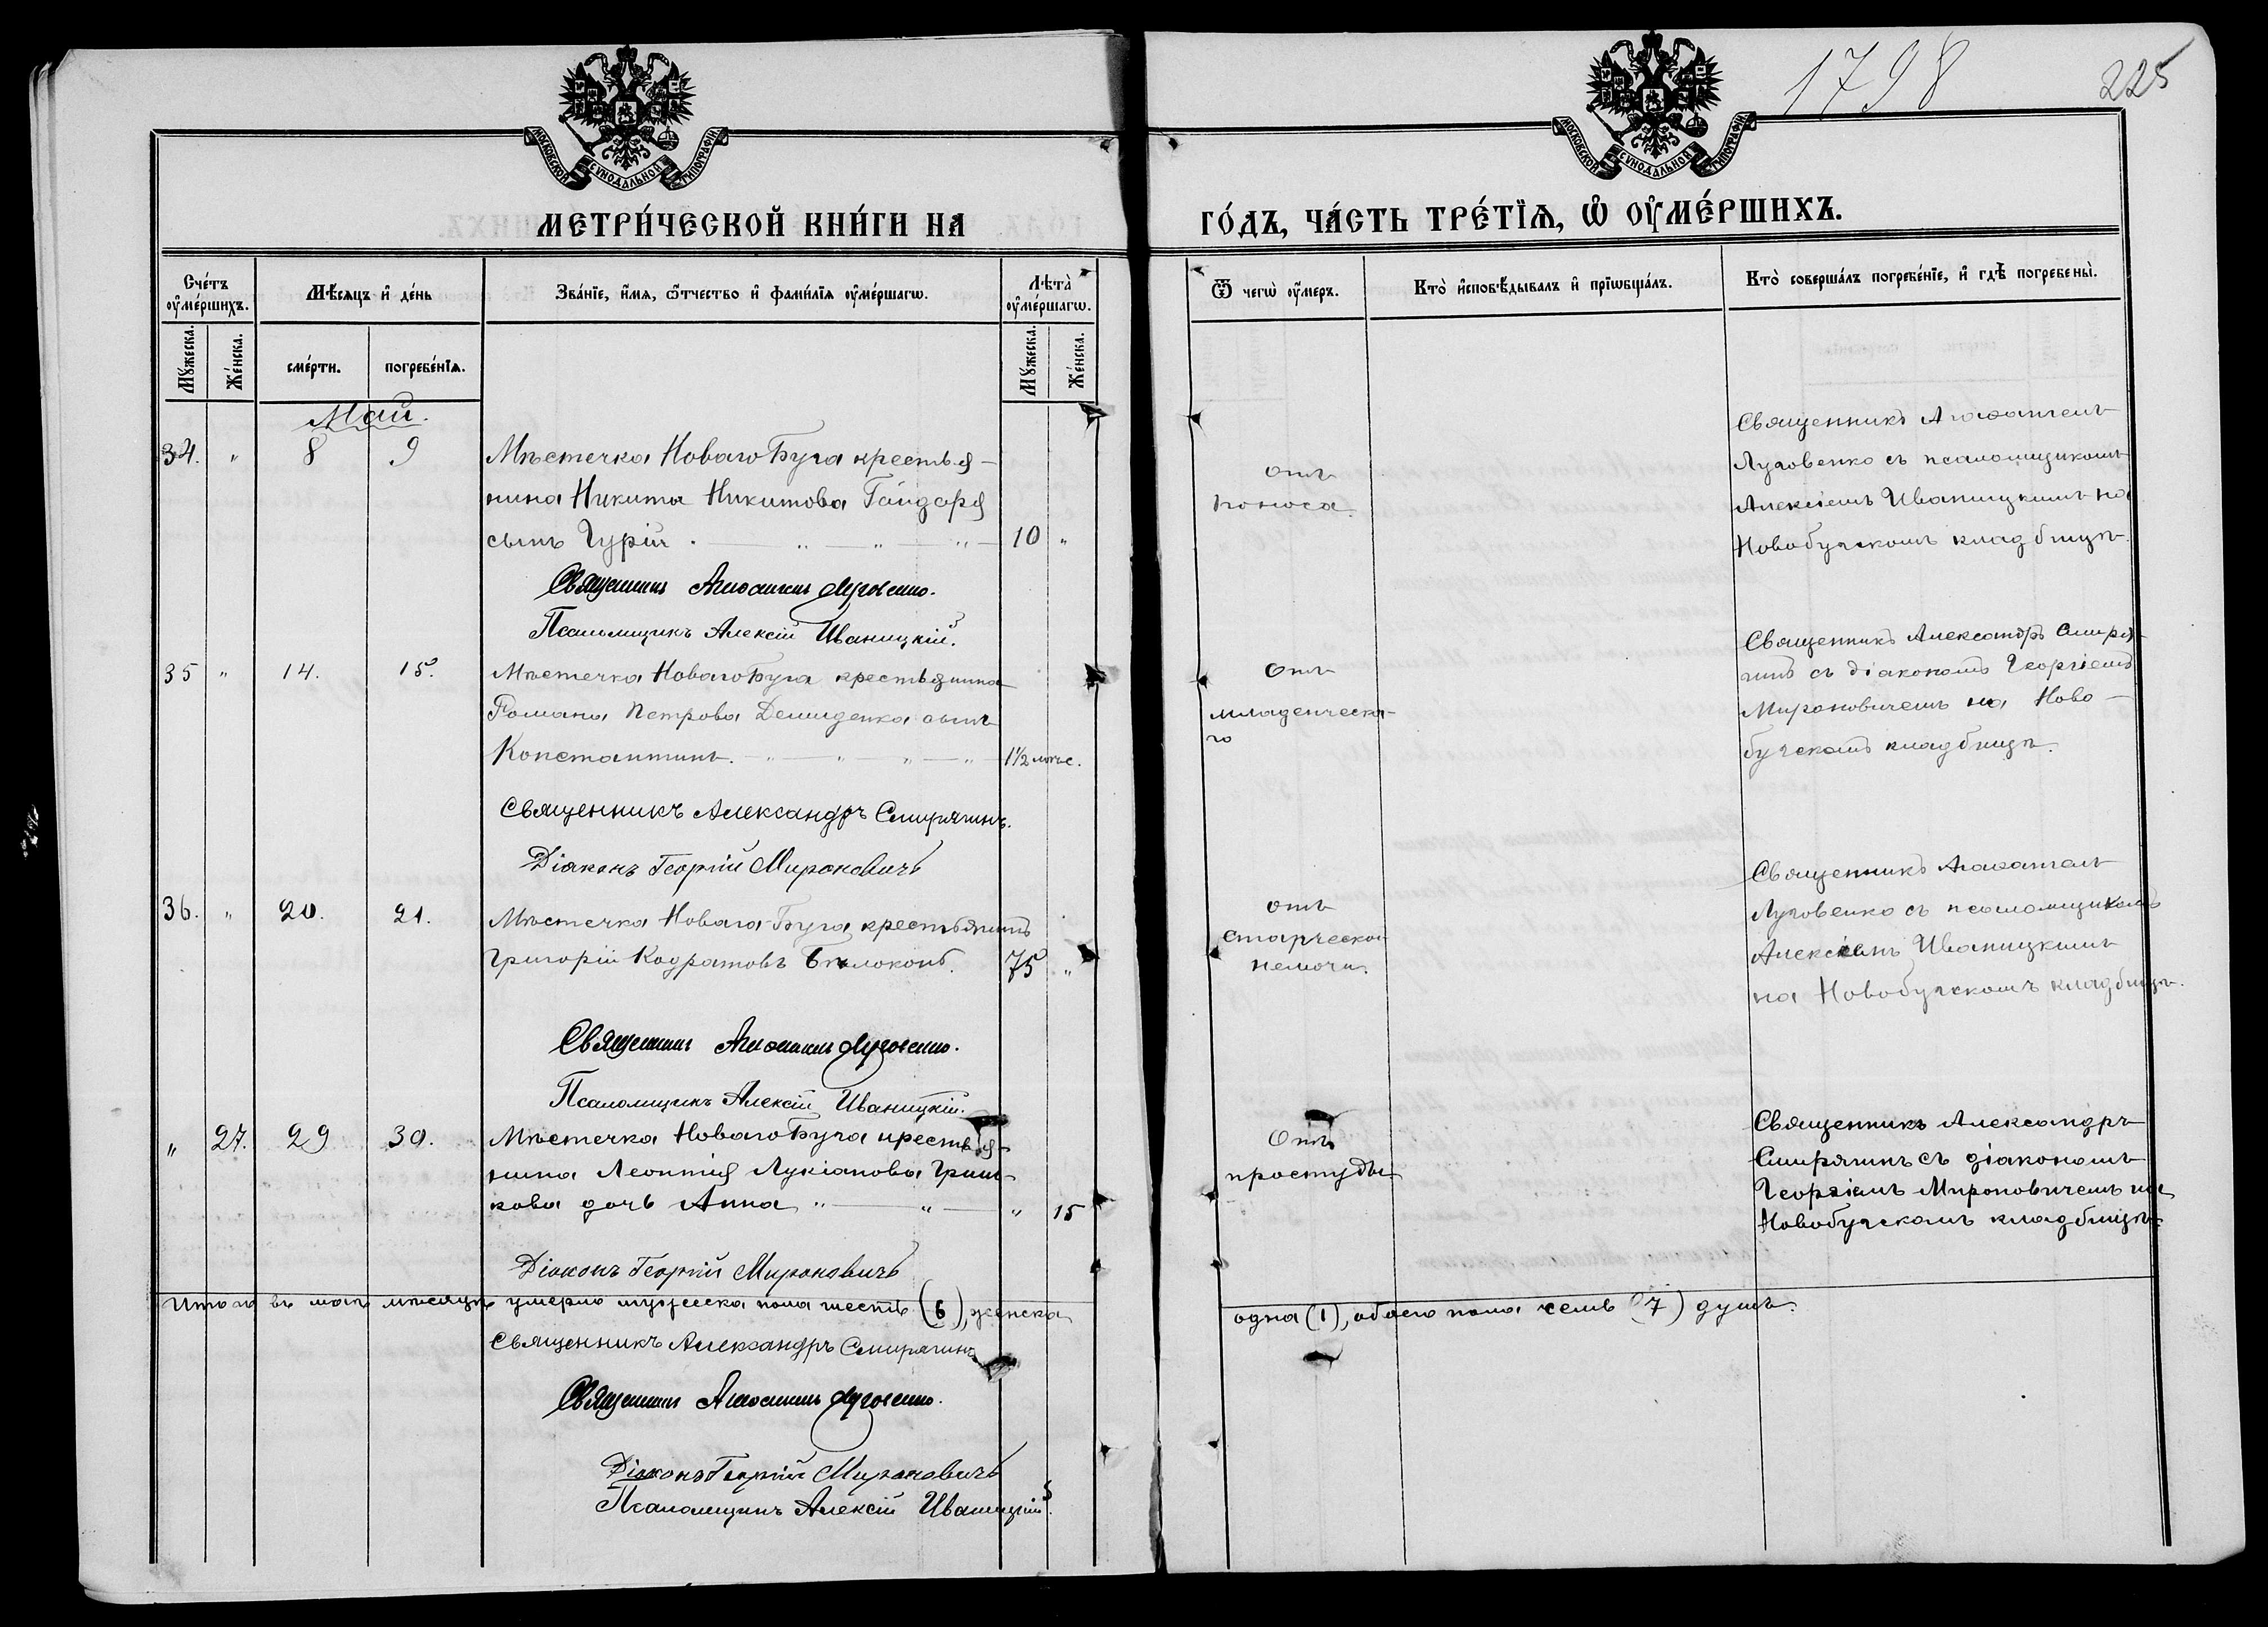 1798
225
МОСКОВСКОЙ СУНОДАЛЬНОЙ ТИПОГРАФІИ
МОСКОВСКОЙ СУНОДАЛЬНОЙ ТИПОГРАФІИ
МЕТРИ́ЧЕСКОЙ КНИ́ГИ НА
ГО́ДЪ, ЧА́СТЬ ТРЕ́ТЇѦ, Ѡ҆ ОУ҆МЕ́РШИХЪ.
Сче́тъ оу҆ме́ршихъ.
Мѣ́сяцъ и҆ де́нь
Зва́нїе, и҆́мѧ, ѻ҆́тчество и҆ фами́лїѧ оу҆ме́ршагѡ.
Лѣта̀ оу҆ме́ршагѡ.
Ѿ чегѡ̀ оу҆́меръ.
Кто̀ и҆сповѣ́дывалъ и҆ прїѡбща́лъ.
Кто̀ соверша́лъ погребе́нїе, и҆ гдѣ̀ погребены̀.
Му́жеска.
Же́нска.
сме́рти.
погребе́нїѧ.
Му́жеска.
Же́нска.
Май.
34. " 8 9 Мѣстечка Новаго Буга крестья-
нина Никиты Никитова Гайдаря
сынъ Гурій. 10 "
отъ
поноса.
Священникъ Агафангелъ
Луговенко съ псаломщикомъ
Алексіемъ Иваницкимъ на
Новобугскомъ кладбищѣ.
Священникъ Агафангелъ Луговенко.
Псаломщикъ Алексій Иваницкій.
35 " 14. 15. Мѣстечка Новаго Буга крестьянина
Романа Петрова Демиденка сынъ
Константинъ. 1½ мѣс.
Отъ
младенческа-
го
Священникъ Александръ Смиря-
гинъ съ діакономъ Георгіемъ
Мироновичемъ на Ново-
бугскомъ кладбищѣ.
Священникъ Александръ Смирягинъ.
Діаконъ Георгій Мироновичъ
36. " 20. 21. Мѣстечка Новаго Буга крестьянинъ
Григорій Кодратовъ Бѣлоконь. 75 "
отъ
старческой
немочи.
Священникъ Агафангелъ
Луговенко съ псаломщикомъ
Алексіемъ Иваницкимъ
на Новобугскомъ кладбищѣ.
Священникъ Агафангелъ Луговенко.
Псаломщикъ Алексій Иваницкій.
" 27. 29 30. Мѣстечка Новаго Буга крестья-
нина Леонтія Лукіанова Гриш-
кова дочь Анна " 15
Отъ
простуды
Священникъ Александръ
Смирягинъ съ діакономъ
Георгіемъ Мироновичемъ на
Новобугскомъ кладбищѣ.
Діаконъ Георгій Мироновичъ
Итого въ маѣ мѣсяцѣ умерло мужеска пола шесть (6), женска
одна (1), обоего пола семь (7) душъ.
Священникъ Александръ Смирягинъ
Священникъ Агафангелъ Луговенко.
Діаконъ Георгій Мироновичъ
Псаломщикъ Алексій Иваницкій.